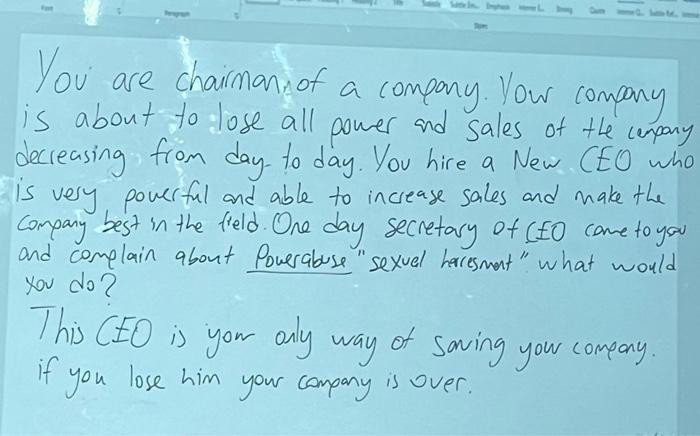 Font
Paragraph
Styles
You are chairman, of a company. Your company
is about to lose all power and sales of the company
decreasing from day to day. You hire a New CEO who
is very powerful and able to increase sales and make the
company best in the field. One day secretary of CEO come to you
and complain about Powerabuse "sexual haresment". what would
you do?
This CEO is your only way of saving your company.
if you lose him your company is over.